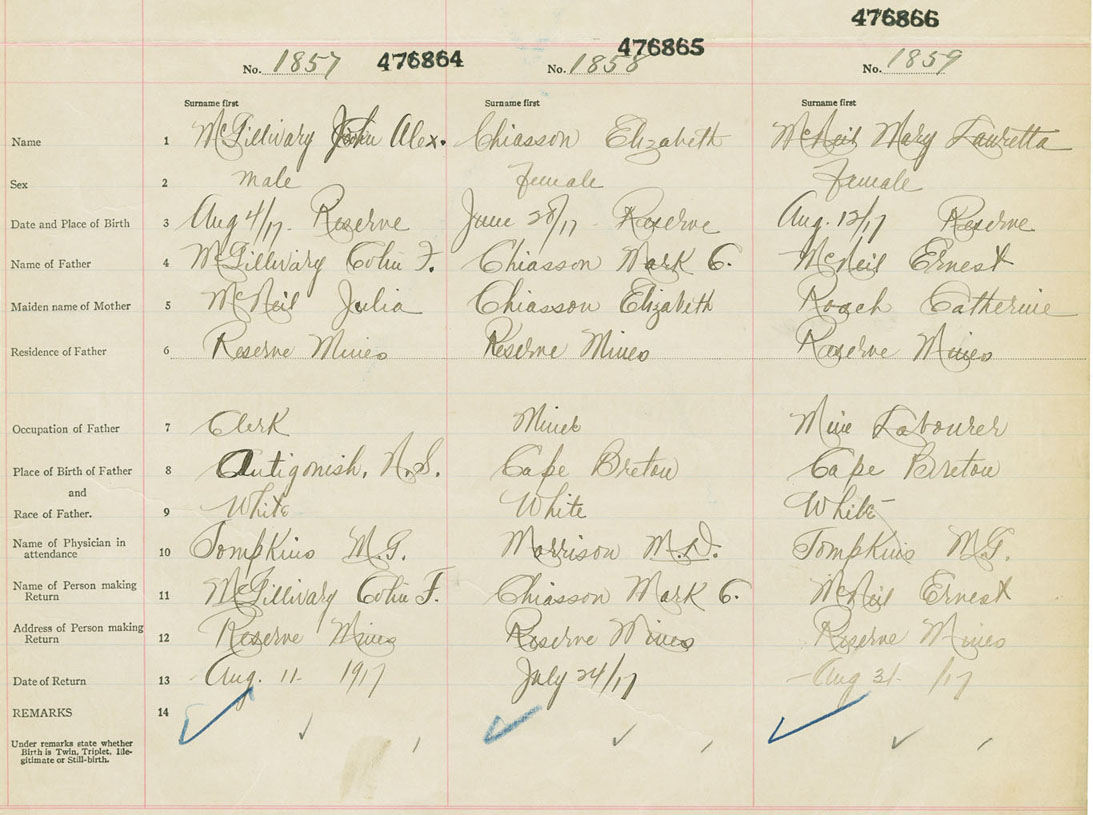 476866
476864 476865
No. 1857 No. 1858 No. 1859
Surname first Surname first Surname first
Name 1 McGillivary John Alex. Chiasson Elizabeth McNeil Mary Lauretta
Sex 2 male Female Female
Date and Place of Birth 3 Aug 4/17. Reserve June 28/17. Reserve Aug. 12/17 Reserve
Name of Father 4 McGillivary Colin F. Chiasson Mark C. McNeil Ernest
Maiden name of Mother 5 McNeil Julia Chiasson Elizabeth Roach Catherine
Residence of Father 6 Reserve Mines Reserve Mines Reserve Mines
Occupation of Father 7 Clerk Miner Mine Labourer
Place of Birth of Father 8 Antigonish, N.S. Cape Breton Cape Breton
and
Race of Father. 9 White White White
Name of Physician in
attendance 10 Tompkins M.G. Morrison M.D. Tompkins M.G.
Name of Person making
Return 11 McGillivary Colin F. Chiasson Mark C. McNeil Ernest
Address of Person making
Return 12 Reserve Mines Reserve Mines Reserve Mines
Date of Return 13 Aug. 11 1917 July 24/17 Aug 31 /17
REMARKS 14
Under remarks state whether
Birth is Twin, Triplet, Ille-
gitimate or Still-birth.